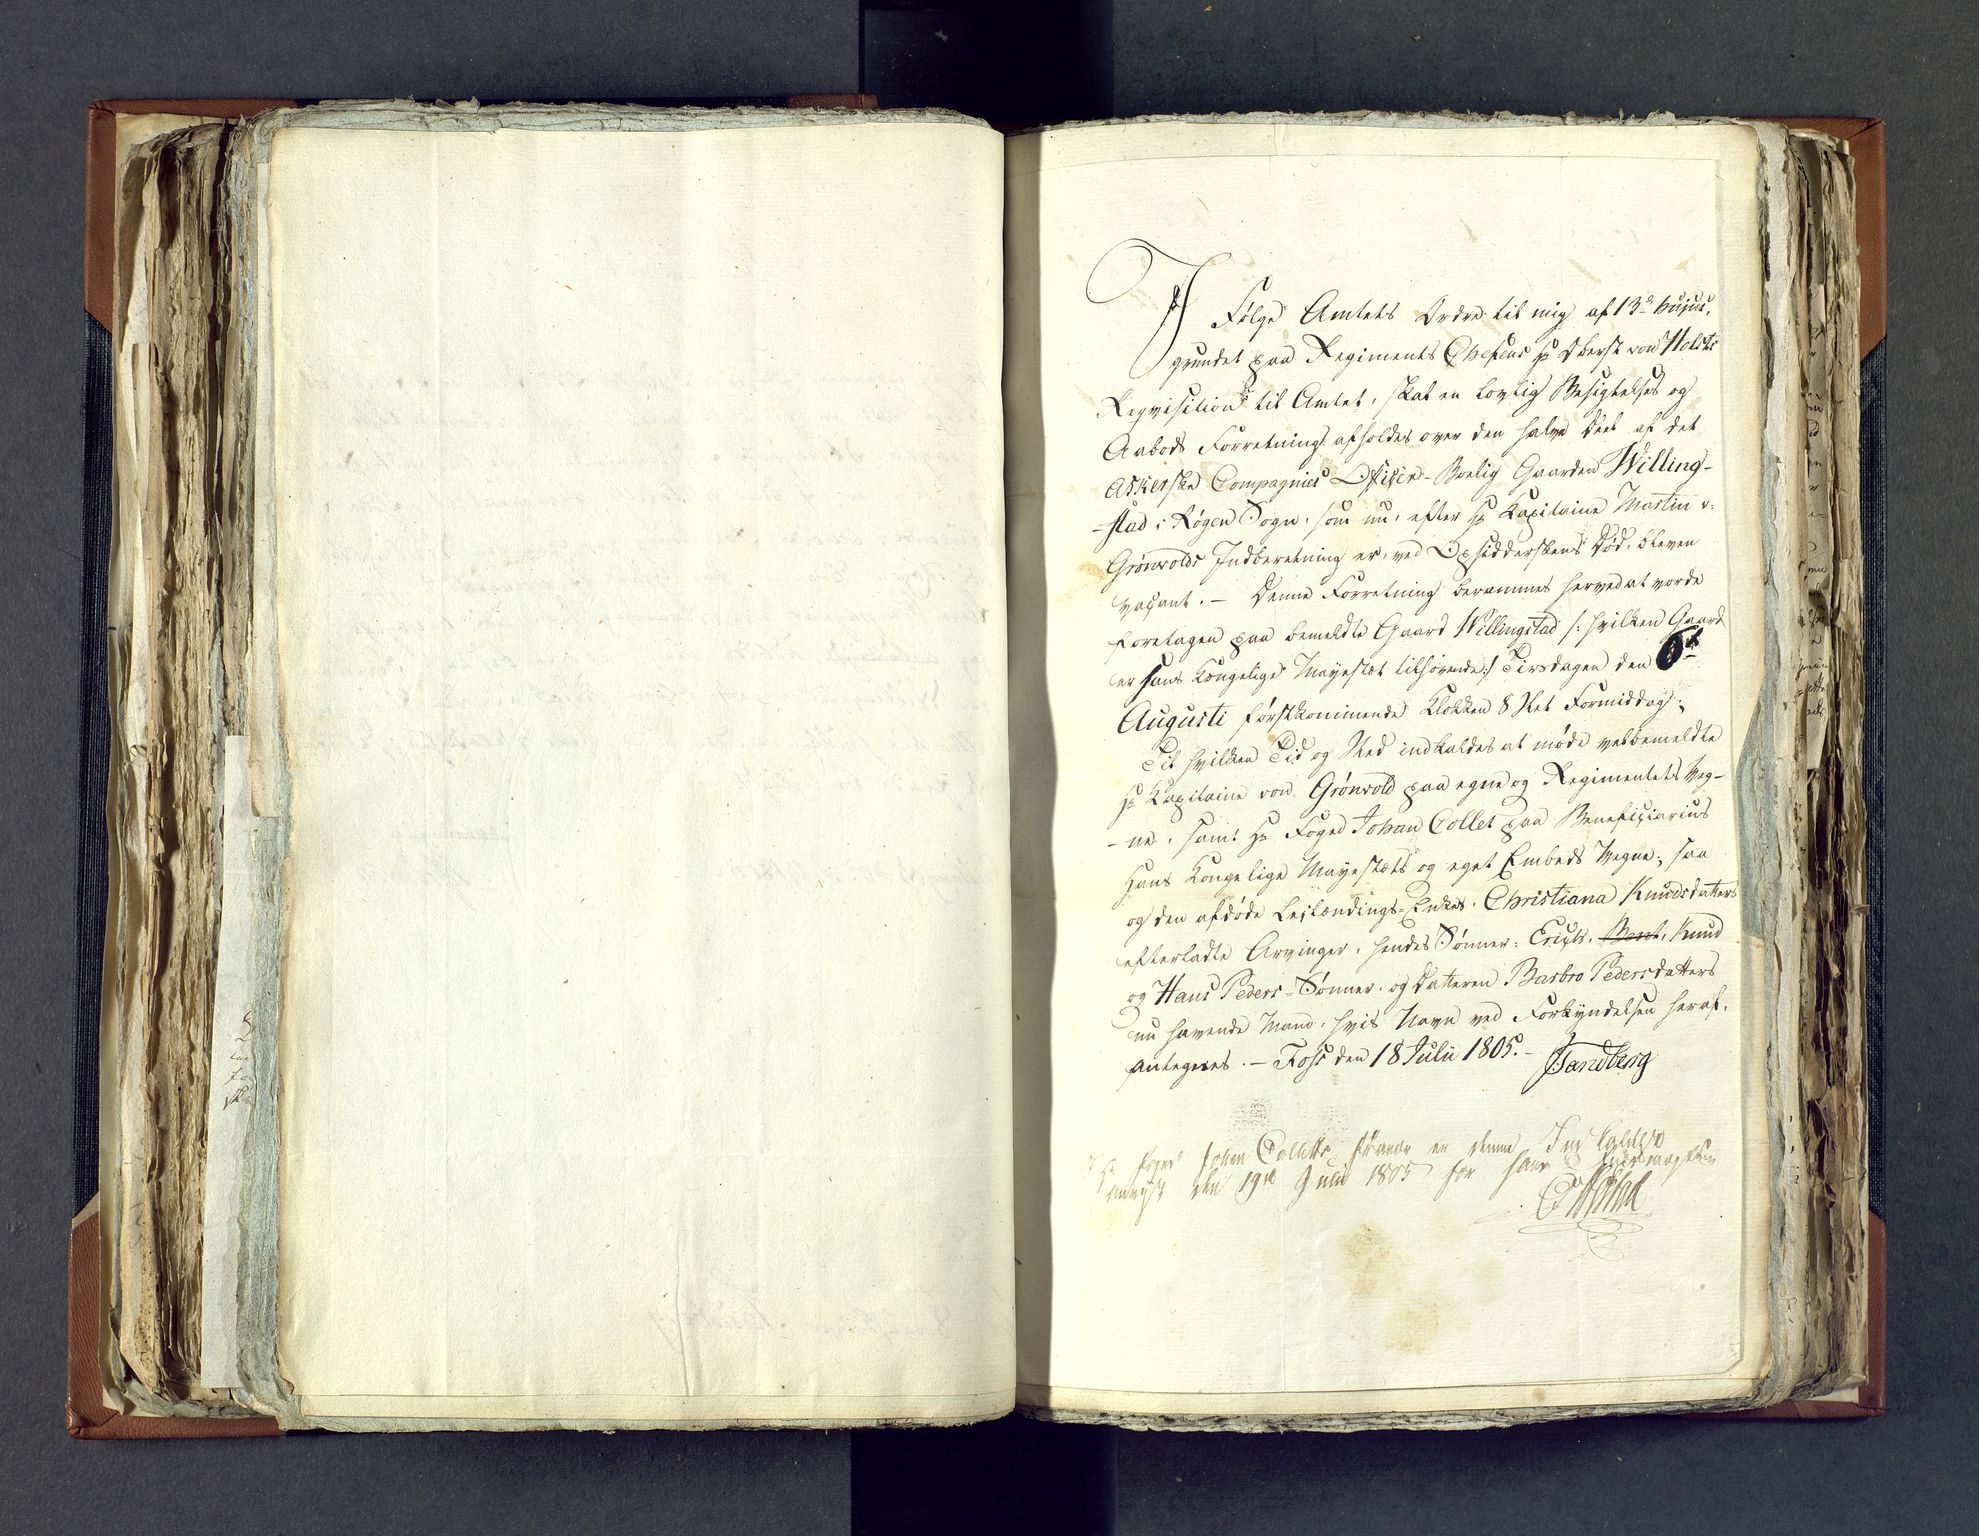 I Følge Amtets Ordre til mig af 13de hujus,
grundet paa Regiments Chefens Hr Oberst von Holsts
Reqvisition til Amtet, skal en lovlig Besigtelses og
Aabods Forretning afholdes over den halve Deel af det
Askerske Compagnies Officer-Boelig Gaarden Willing-
-stad i Røgen Sogn, som nu, efter Hr Kapitaine Martin v:
Grønvolds Indberetning er, ved Opsidderskens Død, bleven
vacant. - Denne Forretning berammes herved at vorde
foretagen paa bemeldte Gaard Willingstad /: hvilken Gaard
er Hans Kongelige Mayestæt tilhørende :/ Tirsdagen den 6te
Augusti førstkommende Klokken 8 Slet Formiddag;
Til hvilken Tid og Sted indkaldes at møde velbemeldte
Hr Kapitaine von Grønvold paa egne og Regimentets Veg-
-ne, samt Hr Foged Johan Collet paa Beneficiarius
Hans Kongelige Mayestæts og eget Embeds Vegne; saa
og den afdøde Leilændings-Enkes, Christiana Knudsdatters
efterladte Arvinger, hendes Sønner: Erich, Bent, Knud
og Hans Peders-Sønner, og Datteren Barbro Pedersdatters
nu havende Mand, hvis Navn ved Forkyndelsen heraf,
antegnes. - Foss den 18 Julii 1805. - JSandberg
Hr Foged Johan Colletts er denne Indkaldelse
anviist den 19de Julii 1805 for hans Fuldmægtig